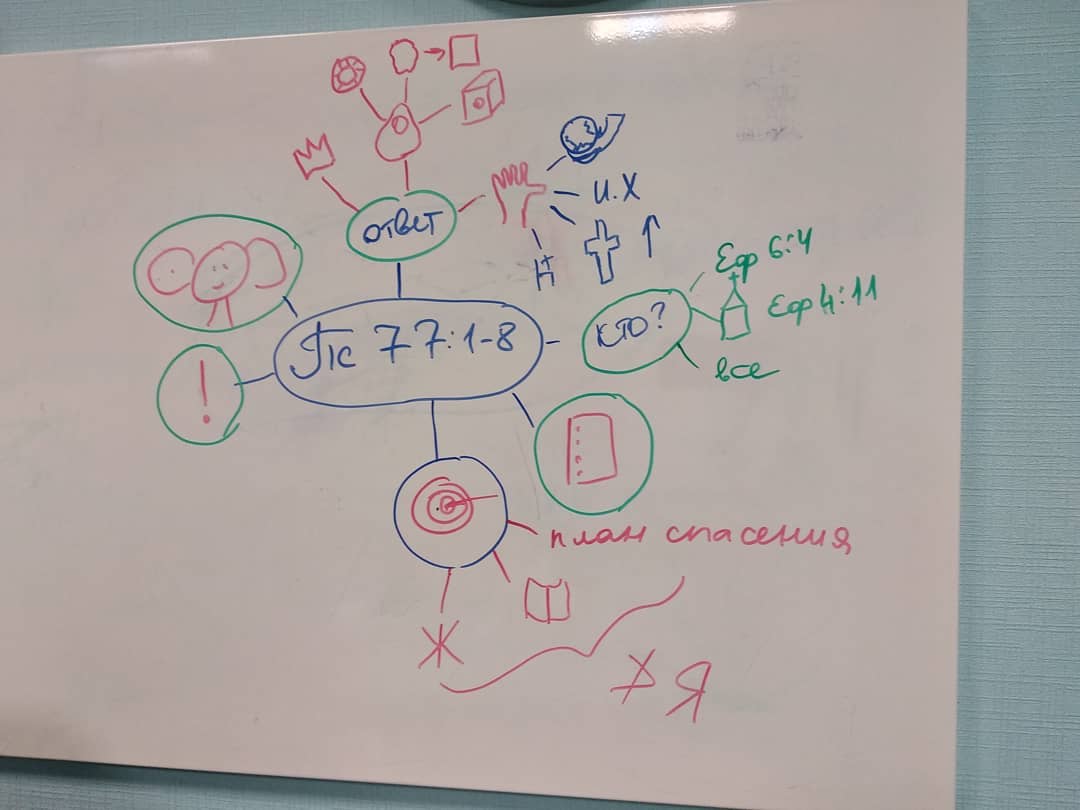 ответ
и.х
Н
Еф 6:4
Еф 4:11
кто?
все
Пс 77:1-8
!
план спасения
Ж
Х Я